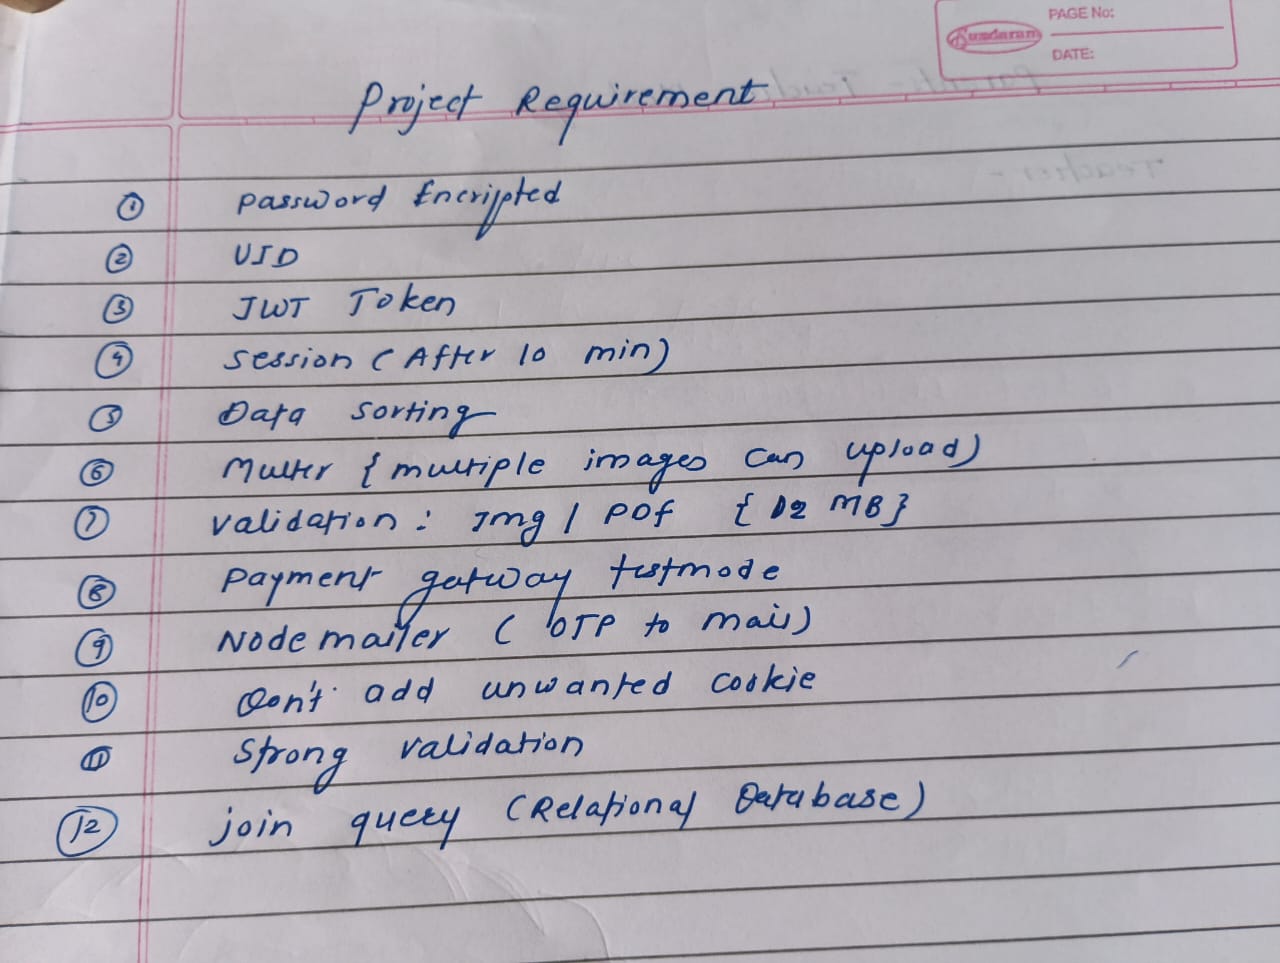 Sundaram
PAGE No:
DATE:
Project Requirement
① Password Encripted
② UID
③ JWT Token
④ Session (After 10 min)
⑤ Data Sorting
⑥ Multer { multiple images can upload)
⑦ Validation : Img / PDF { 2 MB}
⑧ Payment gatway testmode
⑨ Node mailer ( OTP to mail)
⑩ Don't add unwanted cookie
⑪ Strong validation
⑫ join query (Relational Database)
Teacher -